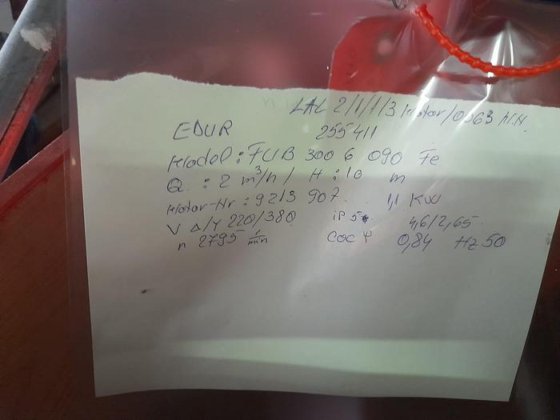 LAL 2/1/1/3 Motor/0063 M.M.
EDUR 255411
Model: FUB 300 6 090 Fe
Q : 2 m³/h / H : 10 m
Motor-Nr: 9213 907. 1,1 KW
V Δ/Y 220/380 IP 54 4,6/2,65
n 2795 1/min cos φ 0,84 Hz 50